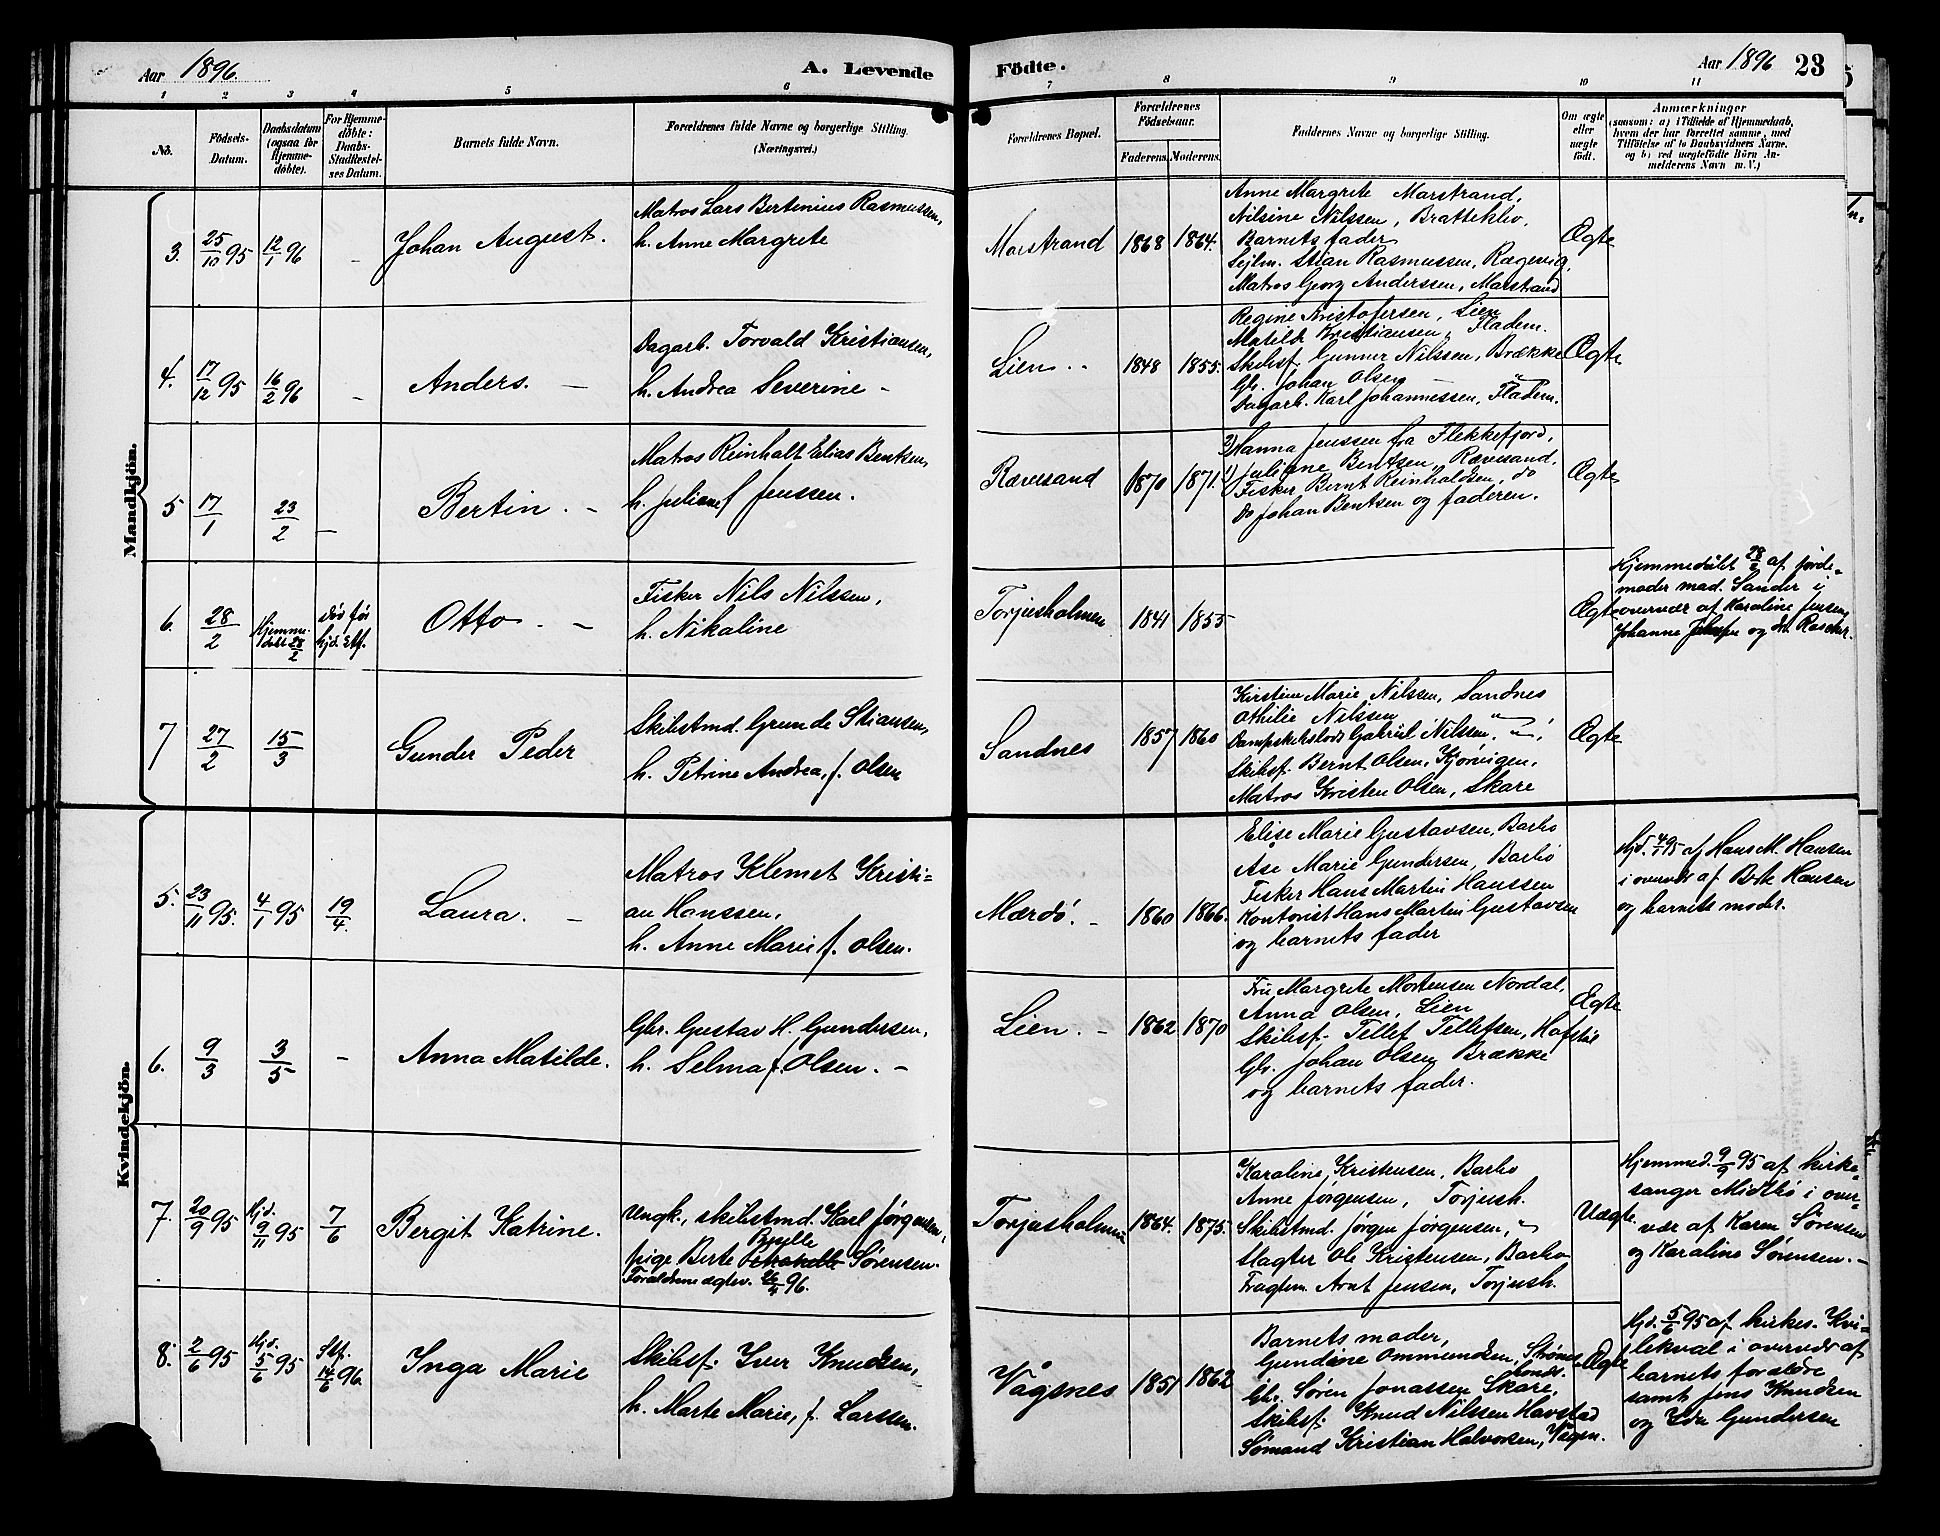 Aar 1896.
A. Levende
Födte.
Aar 1896
23
1 2 3 4 5 6 7 8 9 10 11
No.
Födsels-
Datum.
Daabsdatum
(ogsaa for
Hjemme-
döbte).
For Hjemme-
döbte:
Daabs-
Stadfæstel-
ses Datum.
Barnets fulde Navn.
Forældrenes fulde Navne og borgerlige Stilling.
(Næringsvei.)
Forældrenes Bopæl.
Forældrenes
Födselsaar.
Faderens. Moderens.
Faddernes Navne og borgerlige Stilling.
Om ægte
eller
uægte
født.
Anmærkninger
(saasom: a) i Tilfælde af Hjemmedaab,
hvem der har forrettet samme, med
Tilföielse af to Daabsvidners Navne,
og b) ved uægtefödte Börn An-
melderens Navn m. V.)
Mandkjön.
3. 25/10 95 12/1 96 -
Johan August.
Matros Lars Bertinius Rasmussen,
h. Anne Margrete
Marstrand 1868 1864.
Anne Margrete Marstrand,
Nilsine Nilssen, Bratteklev,
Barnets fader
Sejlm. Stian Rasmussen, Rægevig,
Matros Georg Anderssen, Marstrand
Ægte
4. 17/12 95 16/2 96 -
Anders. -
Dagarb. Torvald Kristiansen,
h. Andrea Severine -
Lien .. 1848 1855.
Regine Kristofersen, Lien
Matilde Kristiansen, Fladem.
Skibsf. Gunner Nilssen, Brække
Gbr. Johan Olsen — "
Dagarb. Karl Johannessen, Fladem.
Ægte
5 17/1 23/2 -
Bertin. -
Matros Reinhalt Elias Bentsen,
h. Juliane f Jenssen.
Rævesand 1870 1871.
2) Hanna Jenssen fra Flekkefjord,
1) Juliane Bentsen, Rævesand,
Fisker Bernt Reinholdsen, do
do Johan Bentsen og faderen.
Ægte
6. 28/2 Hjemme-
døbt 28/2
død før
hjd. Stf.
Otto. -
Fisker Nils Nilssen,
h. Nikaline
Torjusholmen 1841 1855
Ægte
Hjemmedøbt 28/2 af jorde-
moder mad. Sander i
overvær af Karoline Jensen,
Johanne og
7 27/2 15/3
Gunder Peder
Skibstmd. Grunde Stiansen,
h. Petrine Andrea, f. Olsen
Sandnes 1857 1860
Kirstine Marie Nilssen, Sandnes
Othilie Nilssen "
Dampskibslods Gabriel Nilssen, "
Skibsf. Bernt Olsen, Kjørvigen,
Matros Kristen Olsen, Skare
Ægte
Kvindekjön.
5. 23/11 95. 4/1 95 19/4.
Laura. -
Matros Klemet Kristi=
an Hanssen,
h. Anne Marie f. Olsen.
Mærdø. - 1860 1866.
Elise Marie Gustavsen, Barbo
Åse Marie Gundersen, Barbo
Fisker Hans Martin Hanssen
Kontorist Hans Martin Gustavsen
og barnets fader
Hjd. 4/1 95 af Hans M. Hansen
i overvær af Hansen
og barnets moder.
6. 9/3 3/5 -
Anna Matilde.
Gbr. Gustav H. Gundersen,
h. Selma f. Olsen. -
Lien. - 1862 1870
Fru Margrete Mortensen Nordal,
Anna Olsen, Lien
Skibsf. Tellef Tellefsen, Hafstad
Gbr. Johan Olsen Brække
og barnets fader.
Ægte
7. 20/9 95 Hjd.
9/11 95 7/6
Bergit Katrine.
Ungk., skibstmd. Karl Jørgensen,
pige Berte Sørensen.
Forældrene ægtev. 26/4 96.
Torjusholmen 1864. 1875.
Karoline Kristensen, Barbo
Anne Jørgensen, Torjush.
Skibstmd. Jørgen Jørgensen, "
Slagter Ole Kristensen, Barbo
Fragtem. Arnt Jensen, Torjush.
Uægte
Hjemmed. 9/9 95 af kirke=
sanger Midbø i over=
vær af Karen Sørensen
og Karoline Sørensen. -
8. 2/6 95 Hjd.
5/6 95 Stf.
14/6 96.
Inga Marie
Skibsf. Iver Knudsen,
h. Marte Marie, f. Larssen.
Vågsnes 1851 1862
Barnets moder,
Gundine Ommundsen,
Gbr. Søren Jonassen Skare,
Skibsf. Knud Nilssen Havstad
Sømand Kristian Halvorsen, Vågsn.
Ægte
Hjd. 5/6 95 af kirkes. Kvi=
lekval i overvær af
barnets forældre
samt Jens Knudsen
og Gundersen